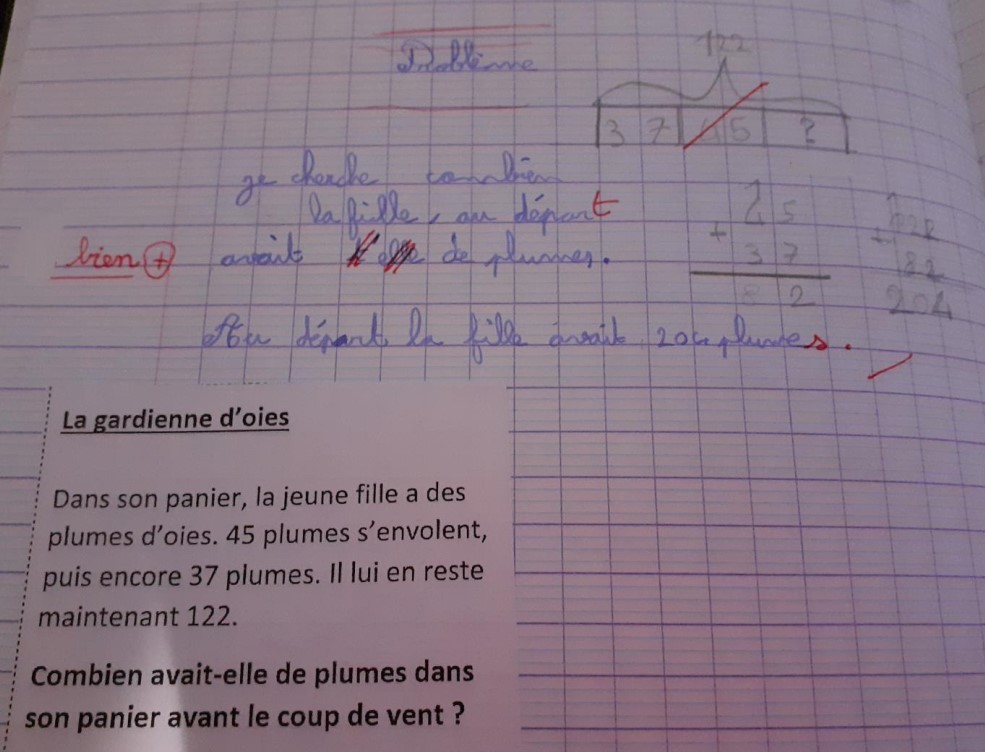 Problème
122
3 7 45 ?
je cherche combien
la fille, au départ
bien + avait de plumes.
45
+ 37
82
122
+ 82
204
Au départ la fille avait 204 plumes.
La gardienne d'oies
Dans son panier, la jeune fille a des
plumes d'oies. 45 plumes s'envolent,
puis encore 37 plumes. Il lui en reste
maintenant 122.
Combien avait-elle de plumes dans
son panier avant le coup de vent ?